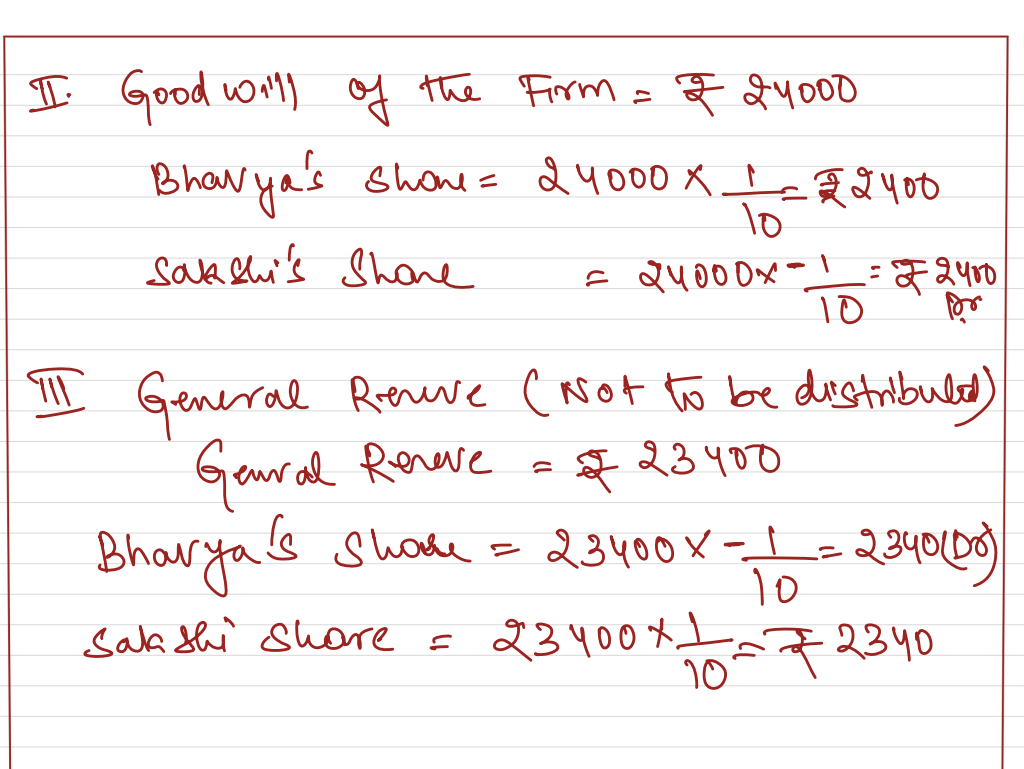 II. Goodwill of the Firm = ₹ 24000
Bhavya's share = 24000 × 1/10 = ₹ 2400
Sakshi's Share = 24000 × -1/10 = ₹ 2400 Dr
III General Reserve (Not to be distributed)
General Reserve = ₹ 23400
Bhavya's share = 23400 × -1/10 = 2340 (Dr)
Sakshi share = 23400 × 1/10 = ₹ 2340